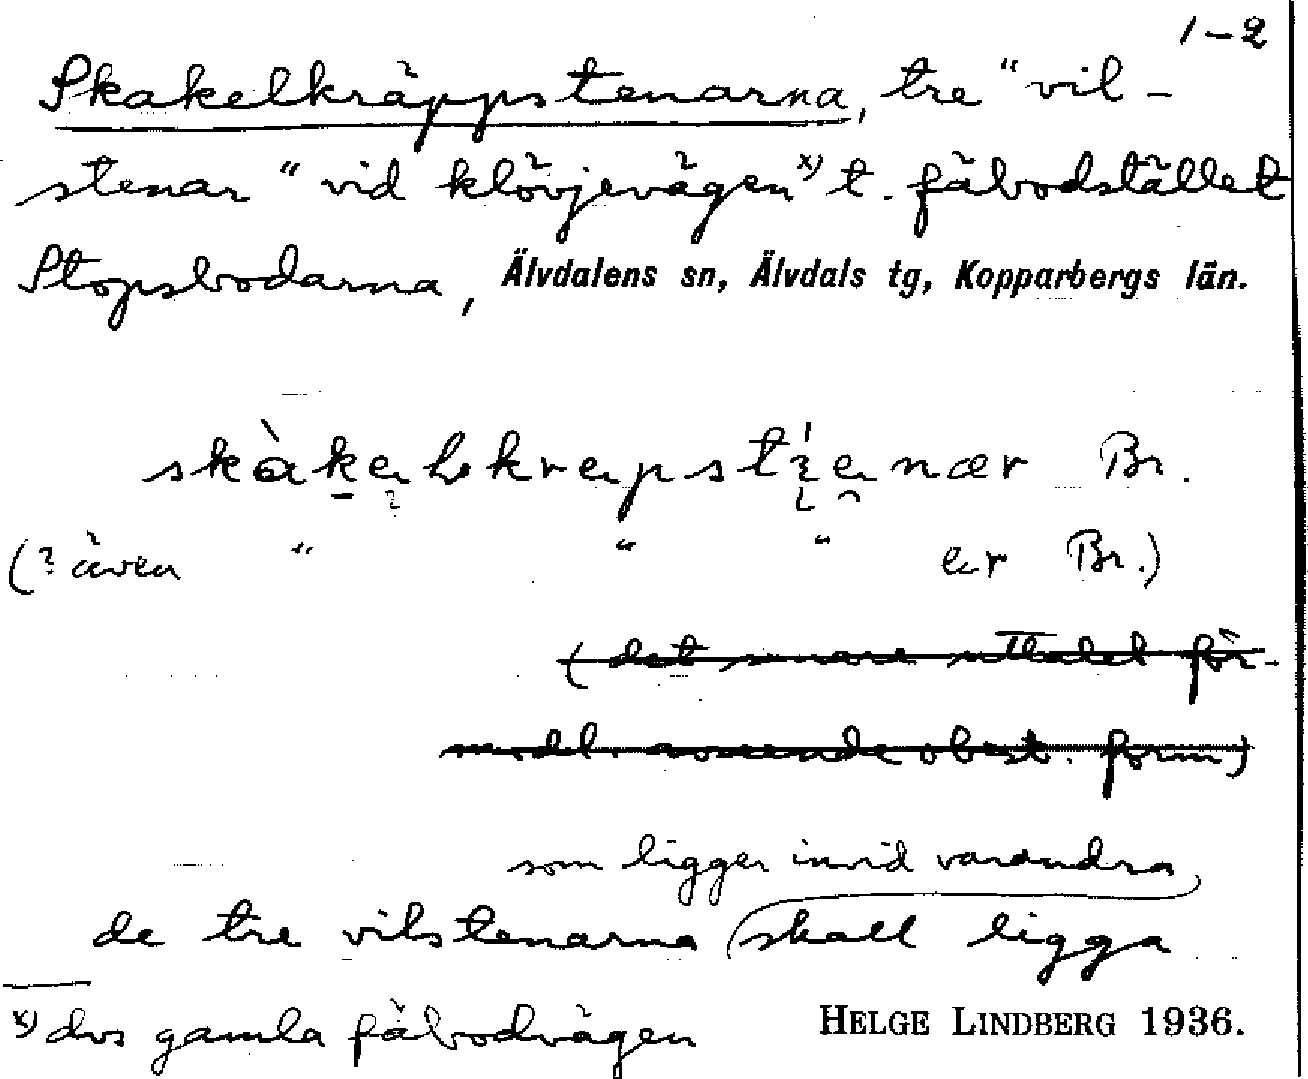 1-2
Skakelkräppstenarna, tre "vil-
stenar" vid klövjevägen x) t. fäbodstället
Stopsbodarna, Älvdalens sn, Älvdals tg, Kopparbergs län.
Br.
(? även " " " er Br.)
(det senare uttalet för-
modl. avseende obest. form)
som ligger invid varandra
de tre vilstenarna skall ligga
x) dvs gamla fäbodvägen
HELGE LINDBERG 1936.